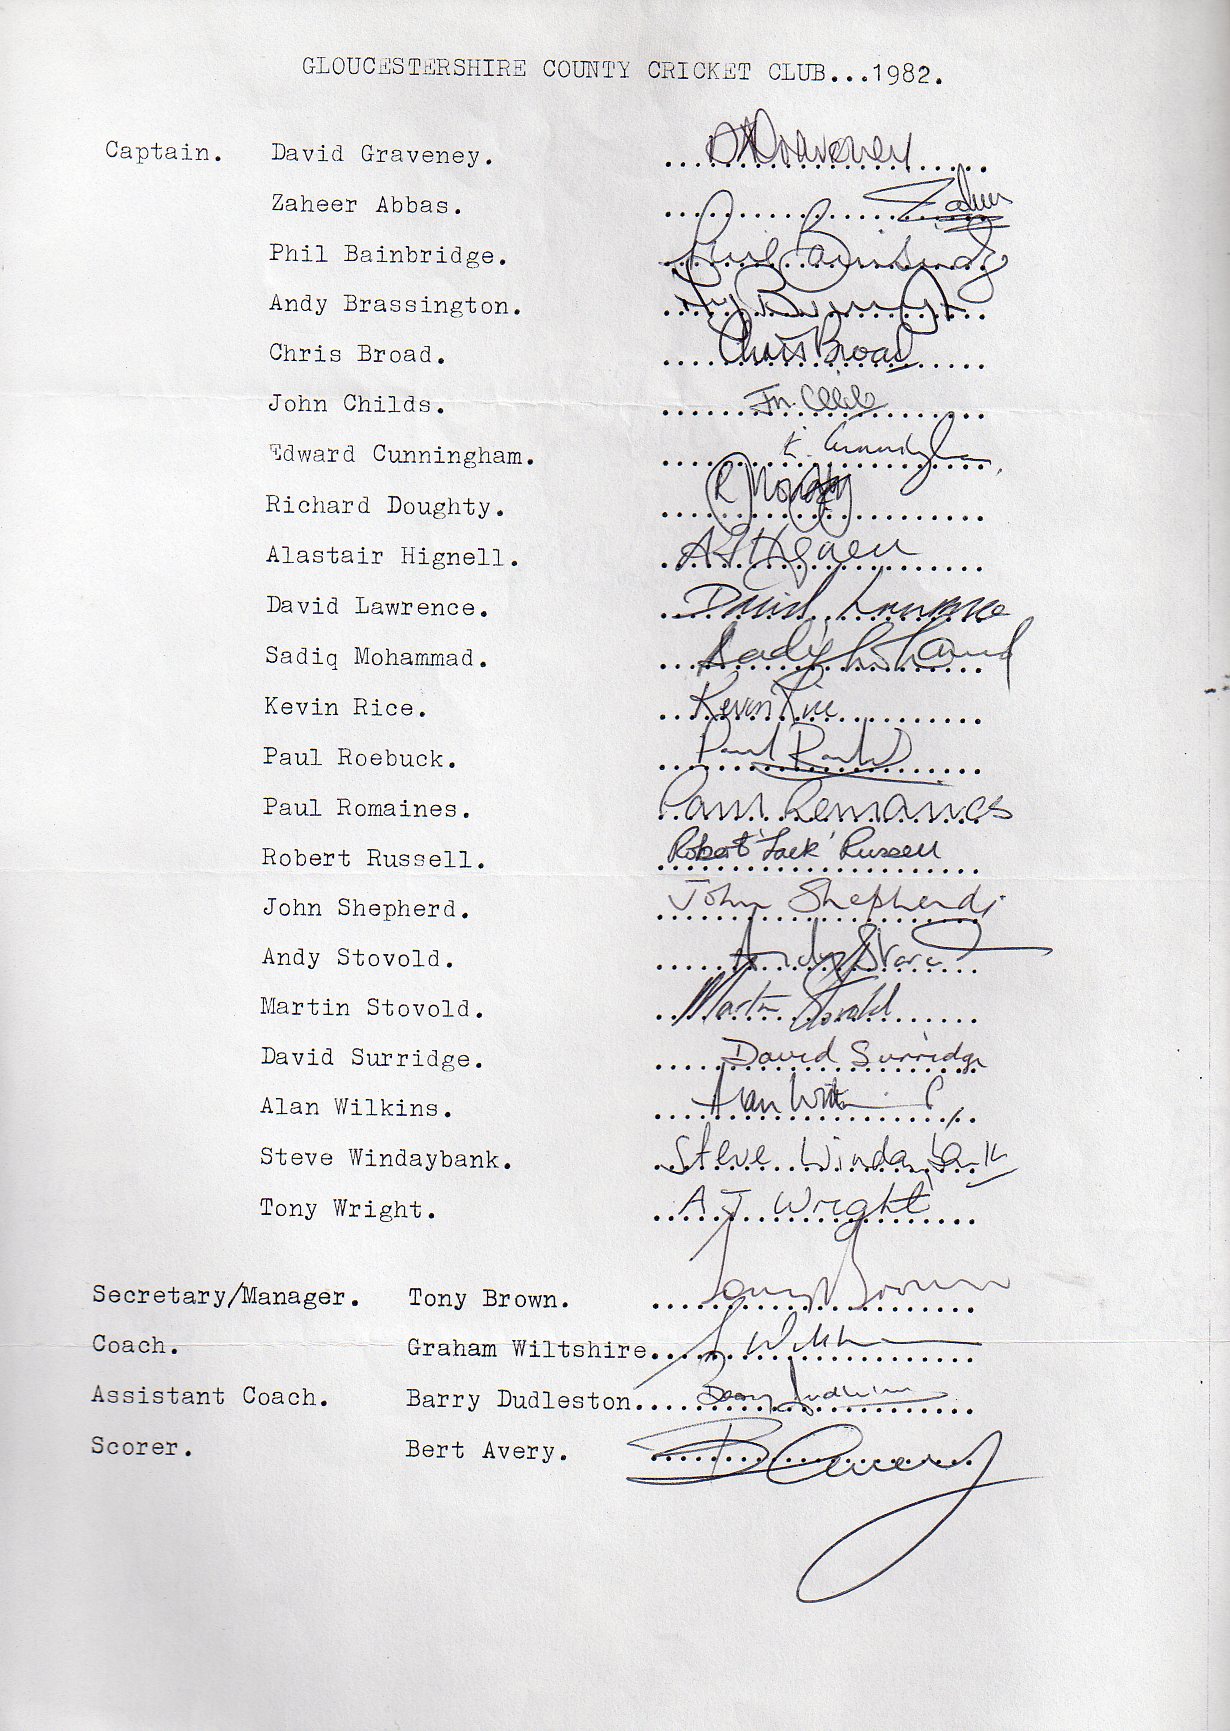 GLOUCESTERSHIRE COUNTY CRICKET CLUB...1982.
Captain. David Graveney. .................... DAGraveney
Zaheer Abbas. .................... Zaheer
Phil Bainbridge. .................... Phil Bainbridge
Andy Brassington. ....................
Chris Broad. .................... Chris Broad
John Childs. ....................
Edward Cunningham. .................... E. Cunningham
Richard Doughty. .................... R Doughty
Alastair Hignell. .................... Hignell
David Lawrence. .................... David Lawrence
Sadiq Mohammad. .................... Sadiq Mohammad
Kevin Rice. .................... Kevin Rice
Paul Roebuck. .................... Paul Roebuck
Paul Romaines. .................... Paul Romaines
Robert Russell. .................... Robert 'Jack' Russell
John Shepherd. .................... John Shepherd
Andy Stovold. .................... Andy Stovold
Martin Stovold. .................... Martin Stovold
David Surridge. .................... David Surridge
Alan Wilkins. .................... Alan Wilkins
Steve Windaybank. .................... Steve Windaybank
Tony Wright. .................... A J Wright
Secretary/Manager. Tony Brown. .................... Tony Brown
Coach. Graham Wiltshire....................
Assistant Coach. Barry Dudleston.................... Barry Dudleston
Scorer. Bert Avery. .................... B Avery